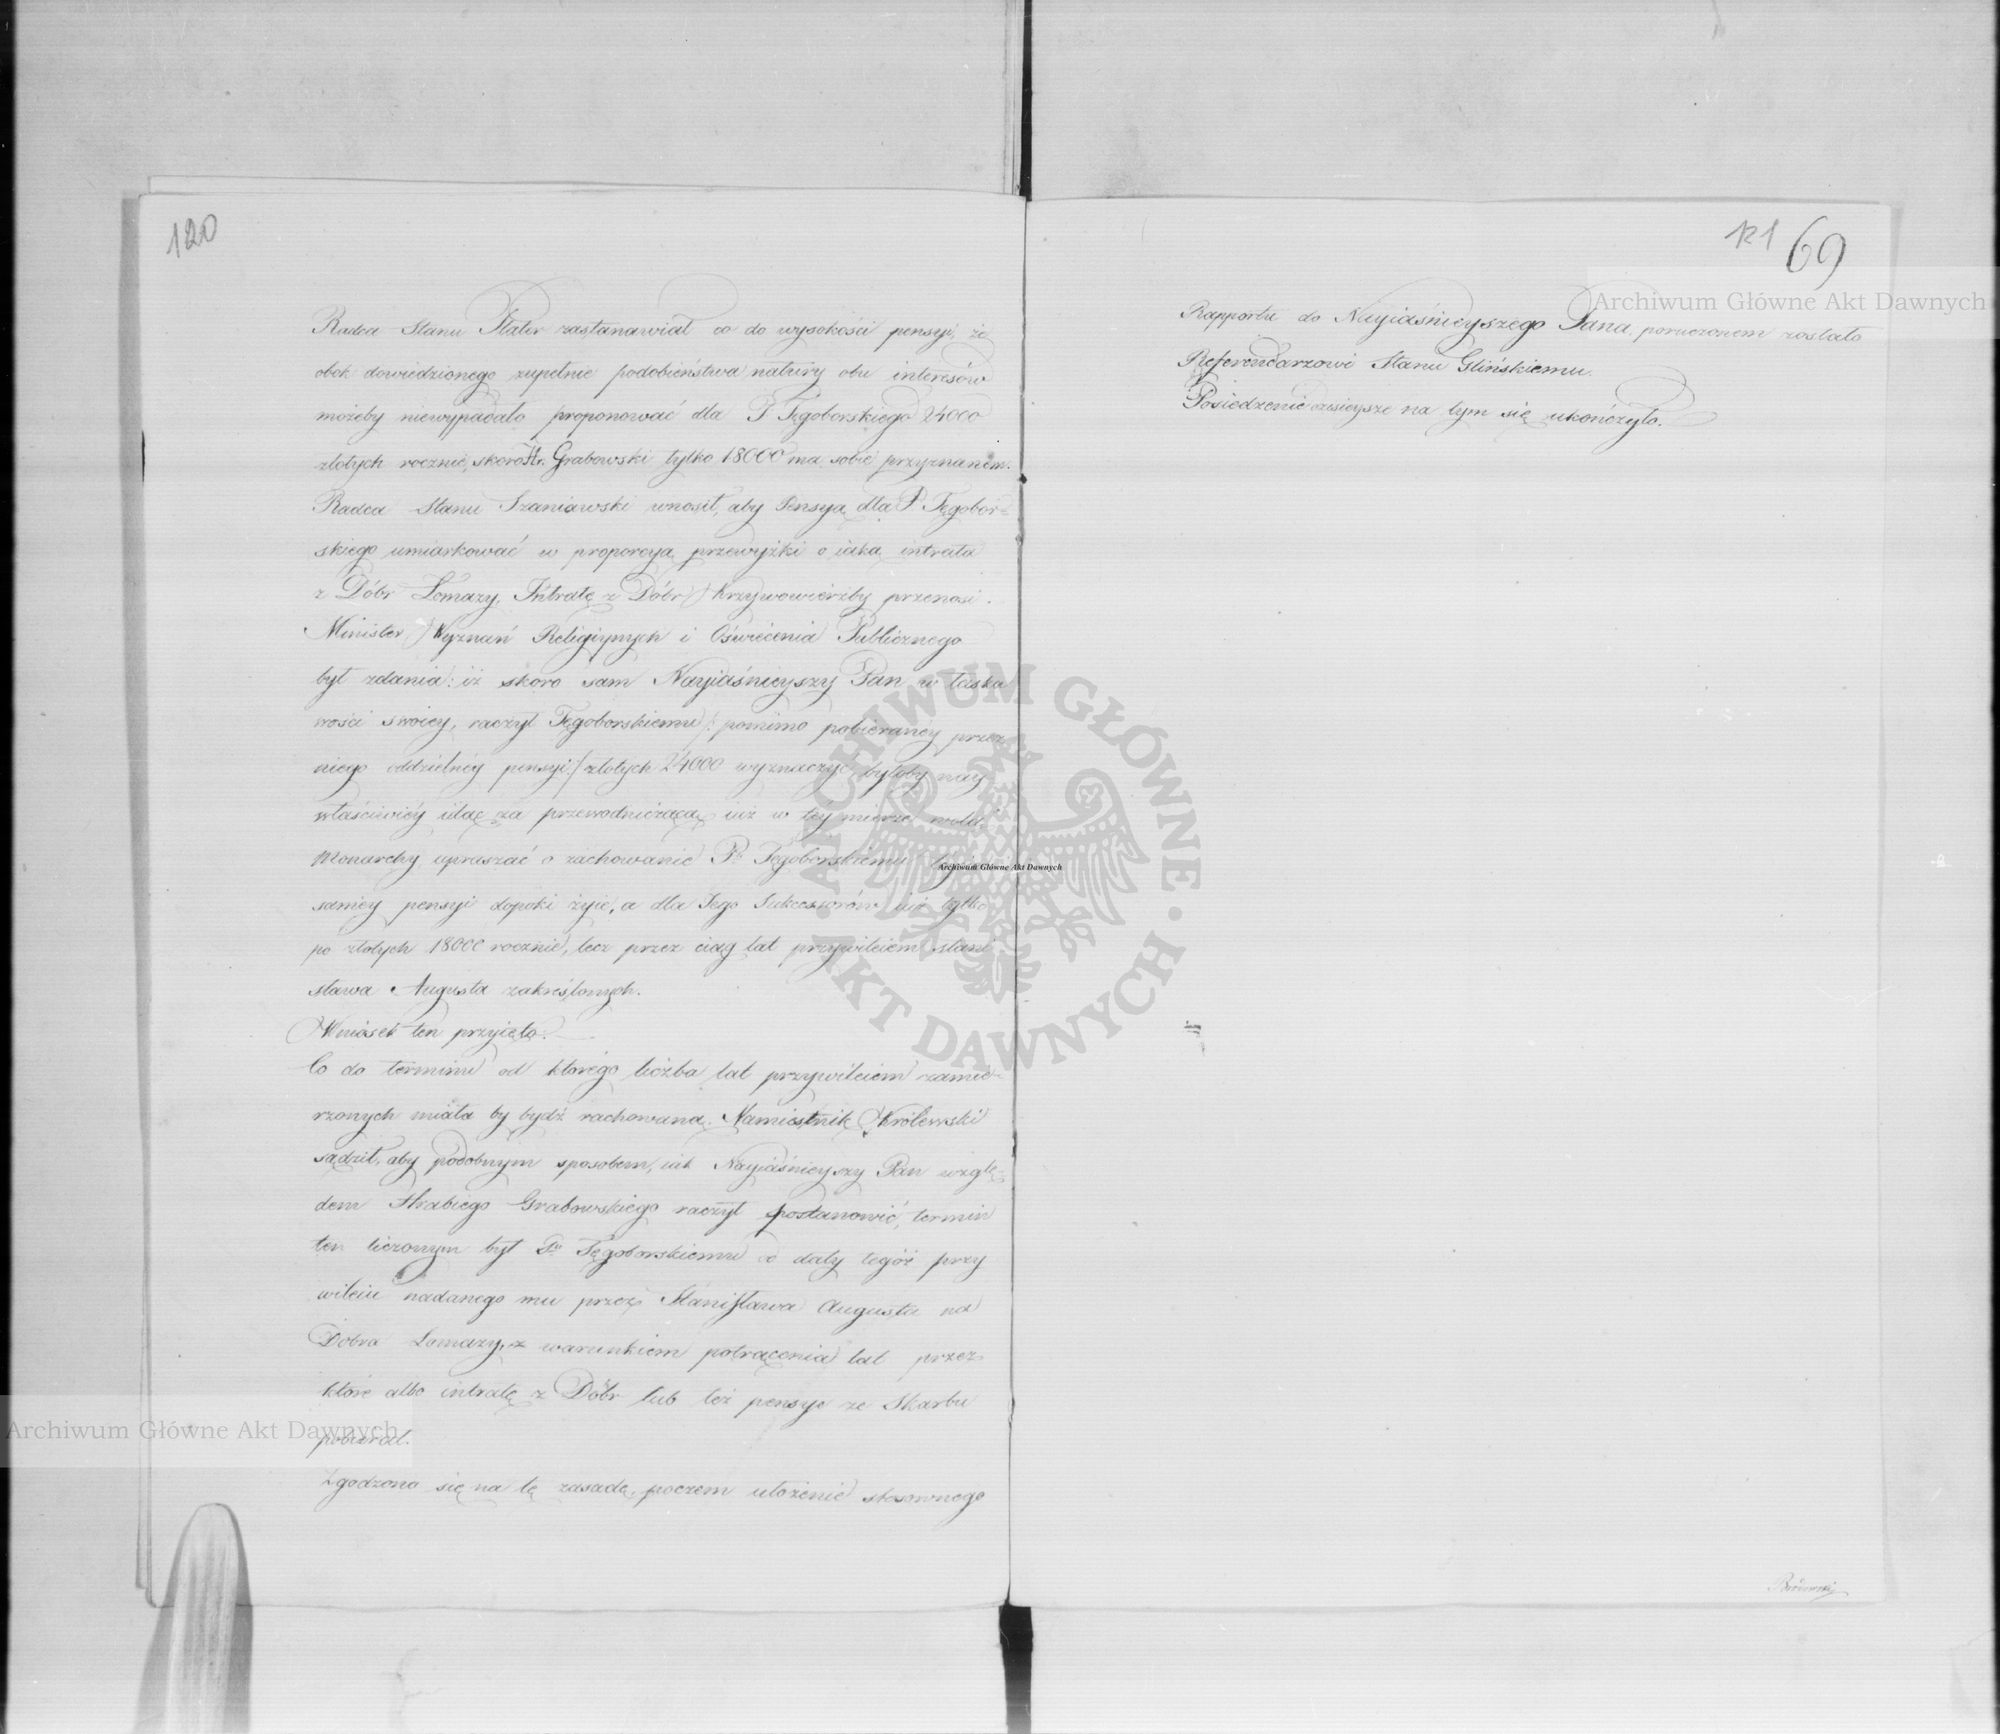 120
Radca Stanu Plater zastanawiał co do wysokości pensyi, że
obok dowiedzionego zupełnie podobieństwa natury obu interesów
możeby niewypadało proponować dla P Tęgoborskiego 24000
złotych rocznie, skoro Hr. Grabowski tylko 18000 ma sobie przyznanem.
Radca Stanu Szaniawski wnosił, aby Pensyą dla P. Tęgobor-
skiego umiarkować w proporcyą przewyżki o iaką intrata
z Dóbr Łomazy, Intratę z Dóbr Krzywowierzby przenosi.
Minister Wyznań Religiynych i Oświecenia Publicznego
był zdania: iż skoro sam Nayiaśnieyszy Pan w łaska
wości swoiey, raczył Tęgoborskiemu /: pomimo pobieraney przez
niego oddzielney pensyi :/ złotych 24000 wyznaczyć, byłoby nay
właściwiey idąc za przewodniczącą iuż w tey mierze wolą
Monarchy upraszać o zachowanie Pu Tęgoborskiemu teyże
samey pensyi dopoki żyie, a dla Jego Sukcessorów iuż tylko
po złotych 18000 rocznie, lecz przez ciąg lat przywileiem Stani
sława Augusta zakreślonych.
Wniosek ten przyięto.
Co do terminu od którego liczba lat przywileiem zamie-
rzonych miała by bydź rachowaną. Namiestnik Królewski
sądził, aby podobnym sposobem, iak Nayiaśnieyszy Pan wzglę-
dem Hrabiego Grabowskiego raczył postanowić, termin
ten liczonym był Pu Tęgoborskiemu od daty tegóż przy
wileiu nadanego mu przez Stanisława Augusta na
Dobra Łomazy, z warunkiem potrącenia lat przez
które albo intratę z Dóbr lub też pensye ze Skarbu
pobierał.
Zgodzono się na tę zasadę, poczem ułożenie stosownego
121 69
Rapportu do Nayiaśnieyszego Pana, poruczonem zostało
Referendarzowi Stanu Glińskiemu.
Posiedzenie dzisieysze na tym się ukończyło.
Archiwum Główne Akt Dawnych
ARCHIWUM GŁÓWNE
AKT DAWNYCH
Archiwum Główne Akt Dawnych
Archiwum Główne Akt Dawnych